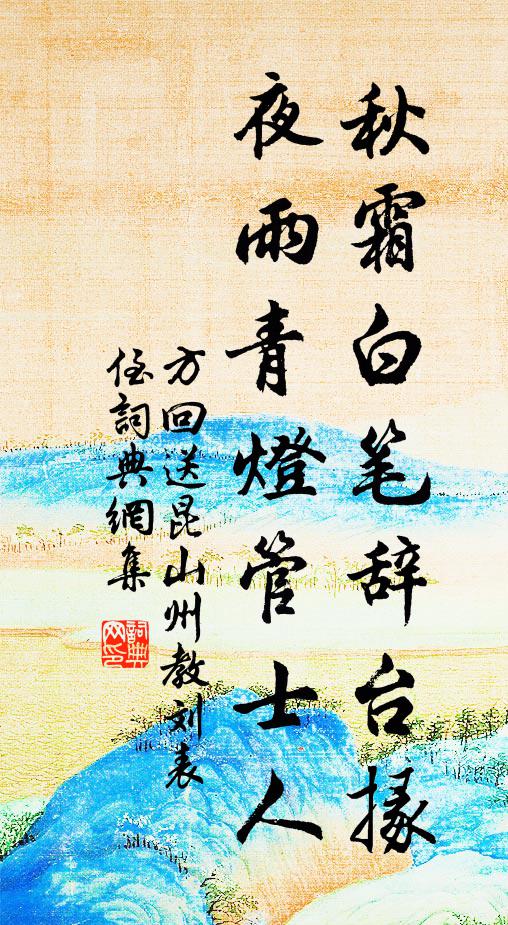 秋霜白笔辞台掾
夜雨青燈管士人
方回送昆山州教刘表
侄詞典網集
詞典
网印